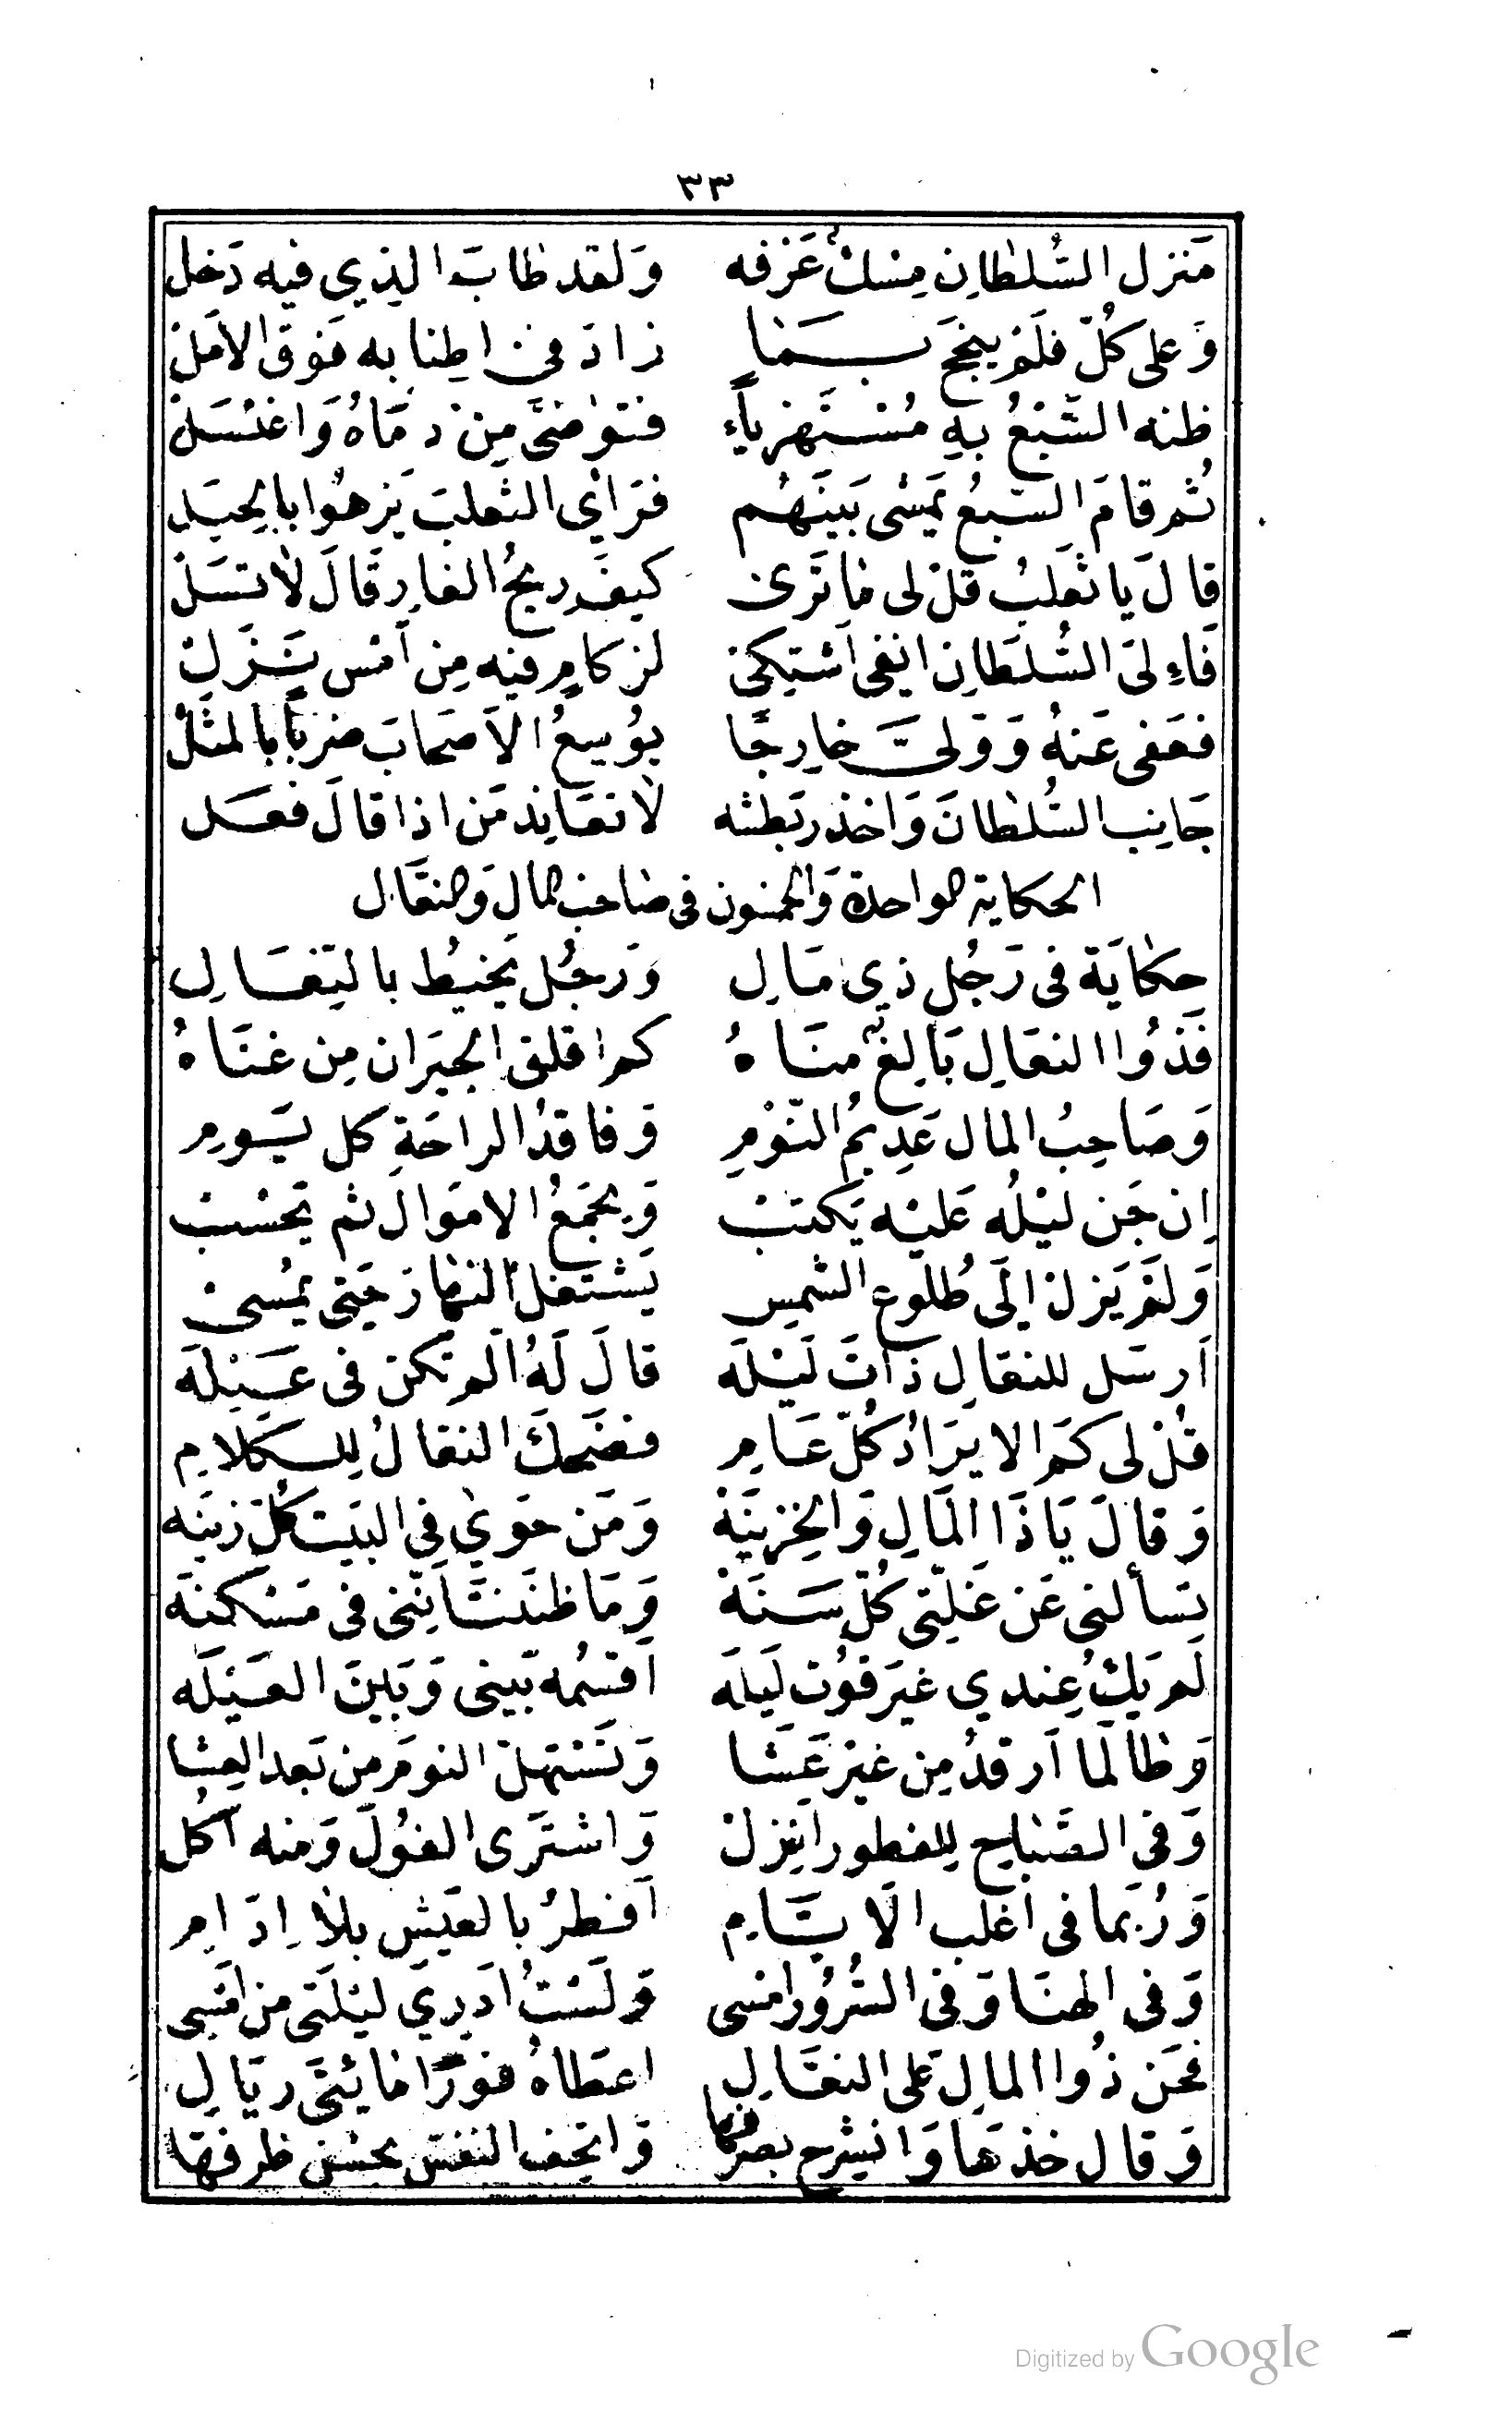 ٣٣
مَنزل السُّلطانِ مِسكٌ عَرفه وَلقد طابَ الذِي فيه دَخل
وَعلى كُلّ فلَمْ ينجحَ بسَمَا زادَ في اطِنابه فَوقَ الأَمَلْ
ظنه السَّبْعُ بهِ مُسْتَهزياً فتوَضى مِن دمَاهُ وَاغتْسَلْ
ثُم قامَ السَّبعُ يَمشْى بَينَهُم فرَاىْ الثعلبَ يَزهُوا بالحِيَل
قالَ يا ثعَلبُ قلْ لى مَا تَرىْ كيفَ رِيحُ الغارِ قَالَ لَا تسَلْ
فَاءِلىَ السُّلطَانِ انفى اَشتكِىْ لزكامٍ فيهِ مِن اَمسْ نَزَلْ
فعَفى عَنهُ وَوَلىَّ خارِجًا يوُسِعُ الاَصحَابَ ضربًا بالمثَلْ
جَانِب السُّلطانَ وَاحْذر بَطشه لَا تعَانِد مَن اذا قالَ فعَل
الحكاية الواحدة وَالخمسون فى صاحب المال وَالنقَّال
حكايَة فى رَجُلٍ ذِي مَالِ وَرَجُل يَخيطُ بالنِعَالِ
فَذوُا النعَالِ بَالِغٌ منَاهُ كم اقلق الجيَران مِن غنَاهُ
وَصَاحِبُ المال عَدِيمُ النّوْمِ وَفاقدُ الراحَةِ كل يَومِ
اِن جَن ليْلُه عَليْه يَكتبْ وَيَجمَعُ الامَوالَ ثم يَحْسبْ
وَلمَ يَزلْ اِلَى طُلوعِ الشمسِ يَشتغَل النهَارَ حَتى يمُسىْ
اَرسَل للنقالِ ذاَتَ لَيْلَه قالَ لَهُ الَم تكنْ فى عَيْلَه
قُلْ لى كَمِ الايرَادُ كُلّ عَامِ فضَحكَ النقالُ لِلكَلامِ
وَقالَ يَا ذَا المَالِ وَالخِزينَةْ وَمَن حَوىٰ فِي البَيت كُلّ زينَه
تسألنى عَن غَلتِى كُلّ سَنَةْ وَمَا ظنَنتَ اَنّنى فى مَسْكنَه
لَم يَكُ عِندي غيرَ قوُت لَيلَه اَقسُمه بَينى وَبَينَ العَيْلَه
وَطالَما اَرقدُ مِن غيْر عَشَا وَنَسْتهِلّ النومَ مِن بَعد العِشا
وَفى الصَّباحِ للفطور انِزلْ وَاشتَرى الفوُلَ وَمنه آكل
وَرُبمَا فى اَغلب الَايَّامِ اَفطرُ بالعَيْشِ بلَا اِدَامِ
وَفى الهنَا وَفى السُّرُور امْسى وَلَسْتُ اَدرِي ليْلَتى مِن اَمسِى
فَحَن ذُوا المالِ عَلى النعَّالِ اعطَاهُ فورًا مَائتَى ريَالِ
وَقال خذهَا وَانشِرح بصَرفها وَاتحِف النفسَ بحُسْن ظرفهَا